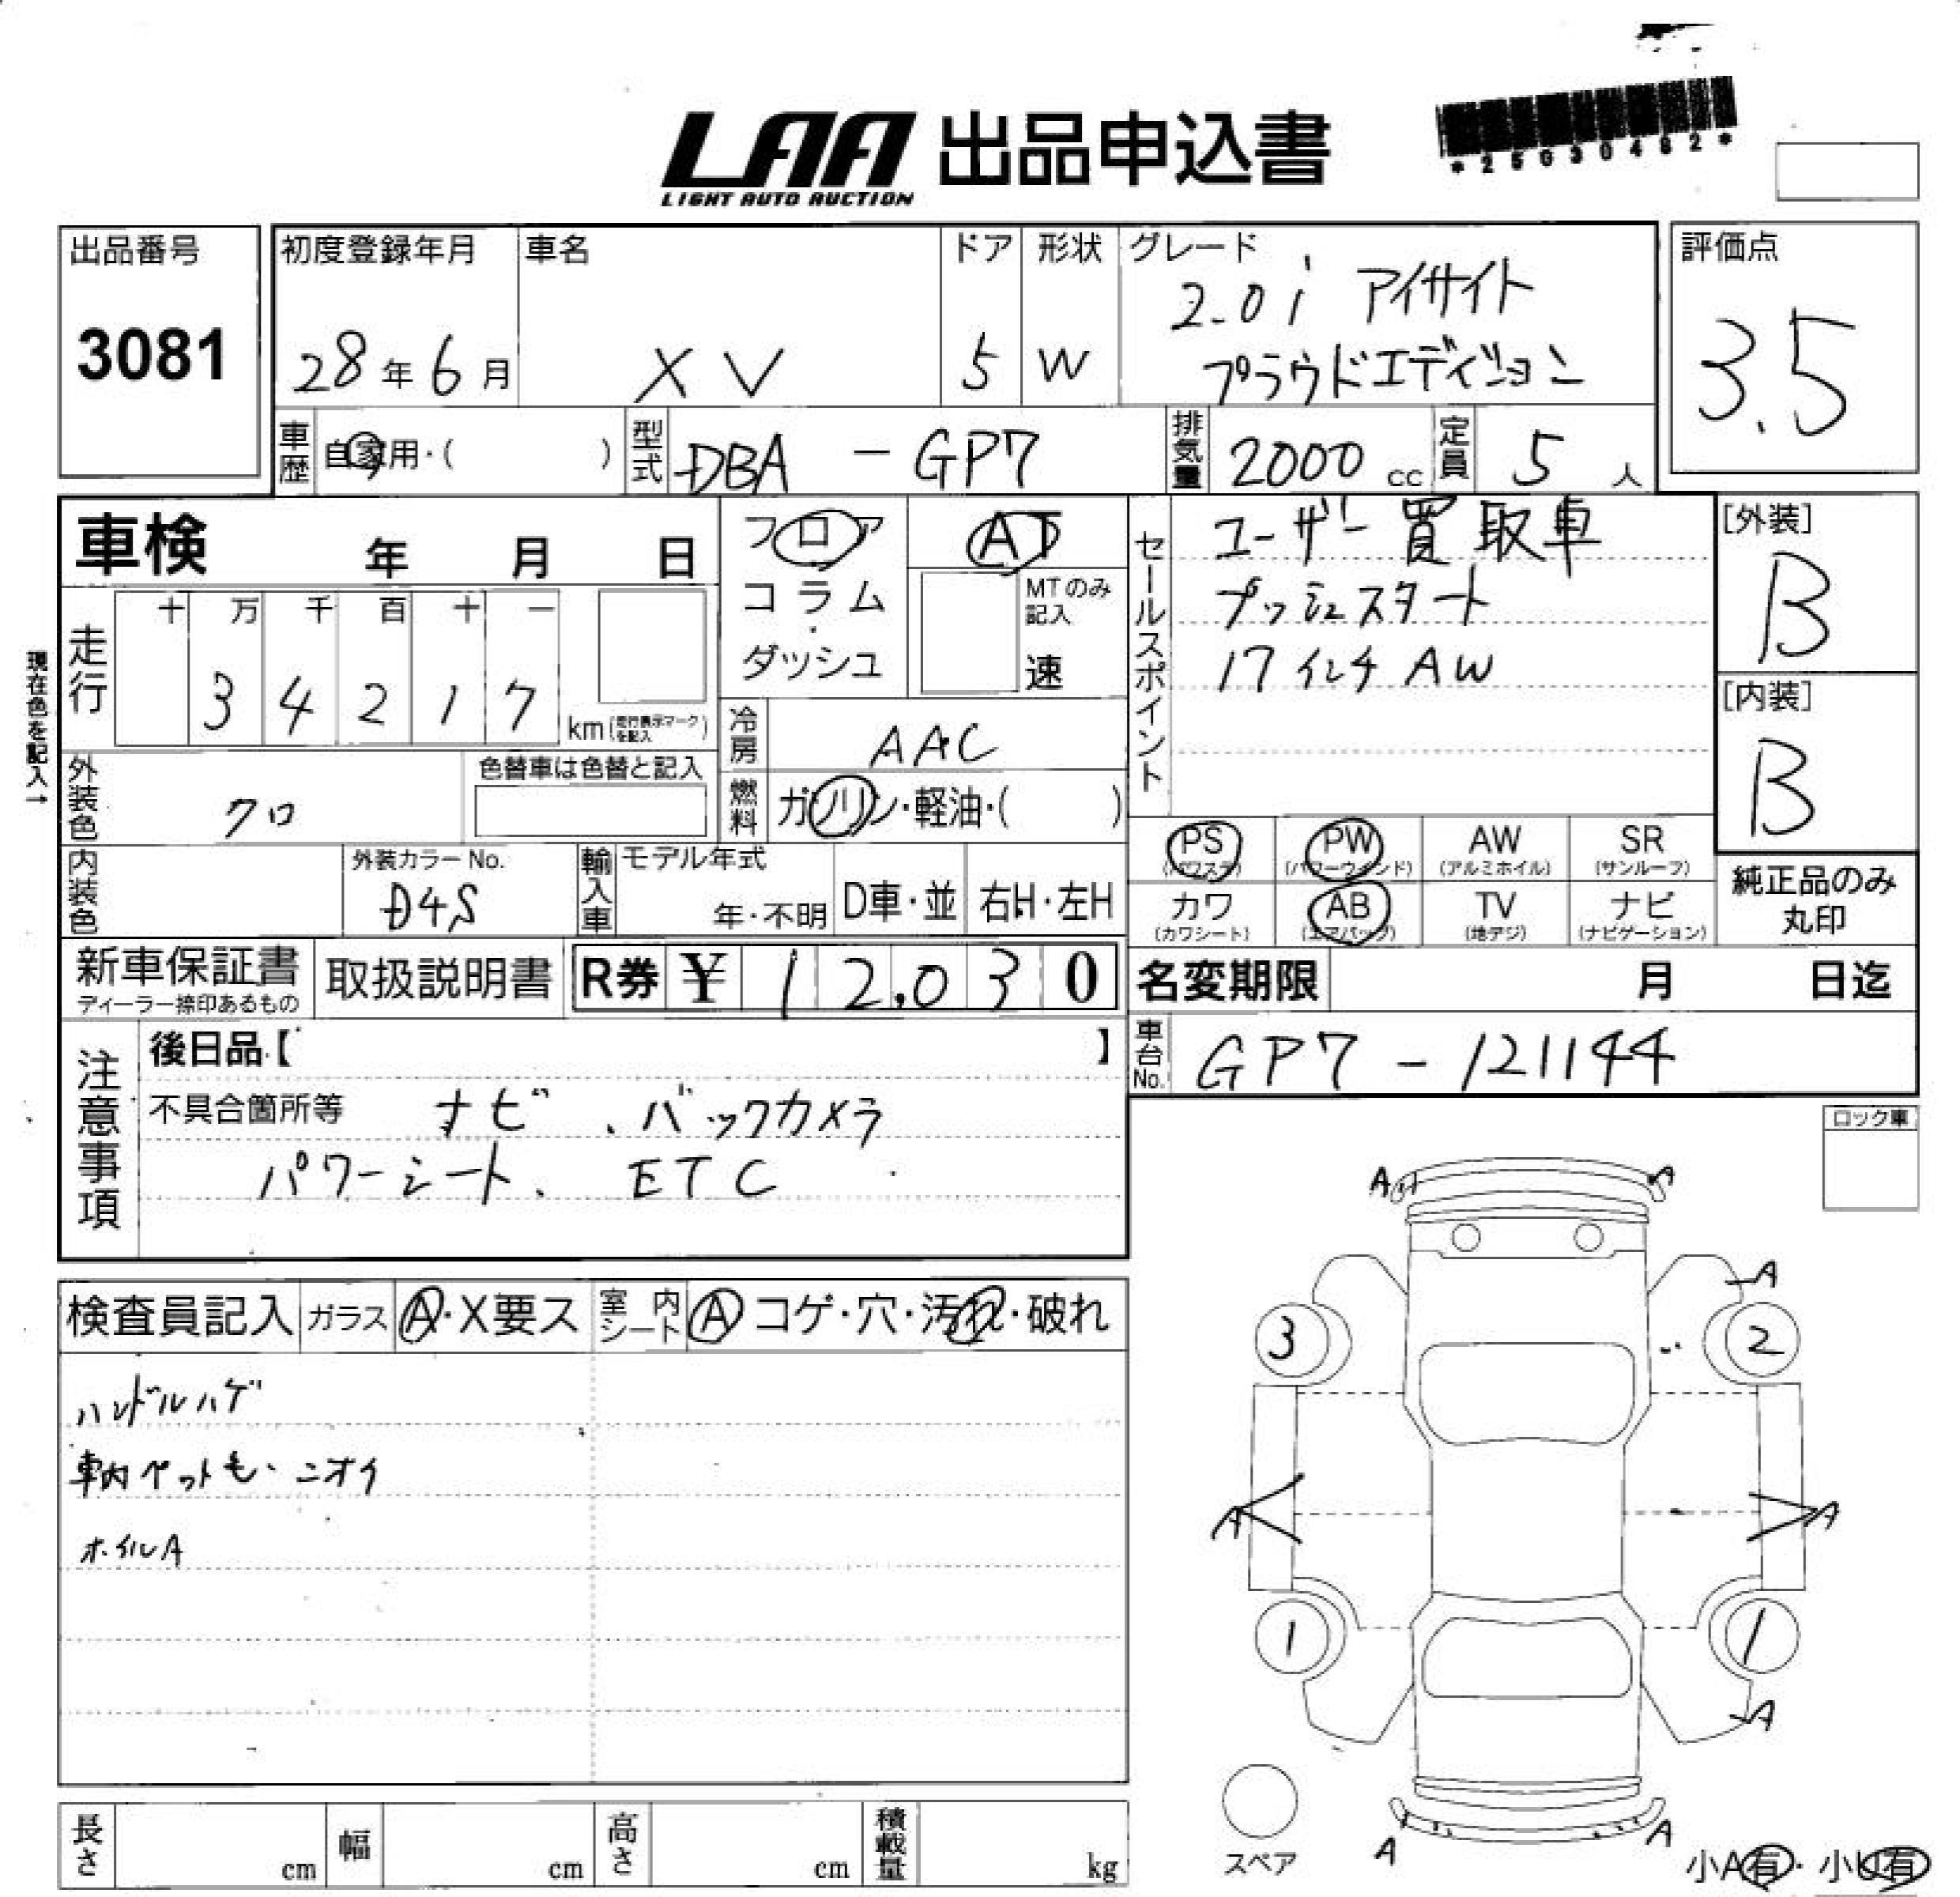 LAA 出品申込書
LIGHT AUTO AUCTION
*25030482*
出品番号
3081
初度登録年月
28年6月
車名
XV
ドア
5
形状
W
グレード
2.0i アイサイト
プラウドエディション
評価点
3.5
車歴
自家用・( )
型式
DBA - GP7
排気量
2000 cc
定員
5 人
車検 年 月 日
フロア
コラム
ダッシュ
AT
MTのみ
記入
速
セールスポイント
ユーザー買取車
プッシュスタート
17インチAW
[外装]
B
[内装]
B
現在色を記入→
走行
十 万 千 百 十 一
3 4 2 1 7
km(走行表示マークを記入)
冷房
AAC
外装色
クロ
色替車は色替と記入
燃料
ガソリン・軽油・( )
PS
(パワステ)
PW
(パワーウインド)
AW
(アルミホイル)
SR
(サンルーフ)
カワ
(カワシート)
AB
(エアバッグ)
TV
(地デジ)
ナビ
(ナビゲーション)
純正品のみ
丸印
内装色
外装カラーNo.
D4S
輸入車
モデル年式
年・不明
D車・並
右H・左H
新車保証書
ディーラー捺印あるもの
取扱説明書
R券 ¥ 12,030
名変期限 月 日迄
車台No.
GP7-121144
注意事項
後日品【 】
不具合箇所等 ナビ、バックカメラ
パワーシート、ETC
ロック車
検査員記入
ガラス
A・X要ス
室内
シート
A コゲ・穴・汚れ・破れ
ハンドルハゲ
車内ペット毛、ニオイ
ホイルA
A A
A
3 2
A A
1 1
A
A A
スペア
小A有・小U有
長さ cm
幅 cm
高さ cm
積載量 kg